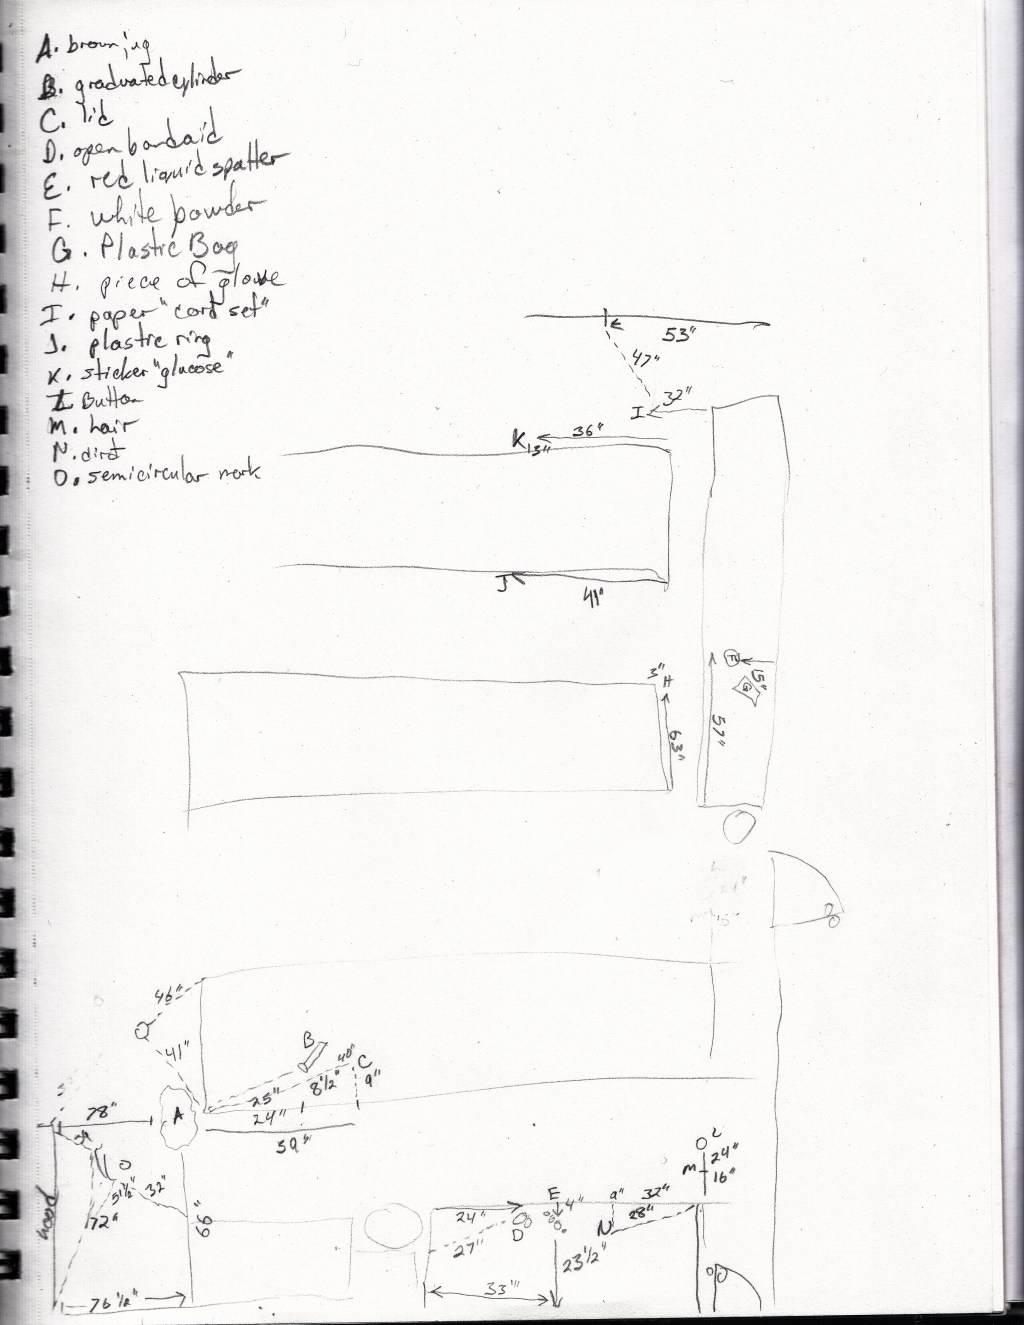 A. brown jug
B. graduated cylinder
C. lid
D. open bandaid
E. red liquid spatter
F. white powder
G. Plastic Bag
H. piece of glove
I. paper "cord set"
J. plastic ring
K. sticker "glucose"
L Button
M. hair
N. dirt
O. semicircular mark
53"
47"
I 32"
K 36"
13"
J
41"
3" H
F
15"
G
57"
63"
46"
41"
B
40" C
8 1/2" 9"
25"
24"
39"
78" A
O
5 1/2" 32"
72"
hood
66"
76 1/2"
L
24"
M
16"
E 4" 9" 32"
24" D N 28"
27"
23 1/2"
33"